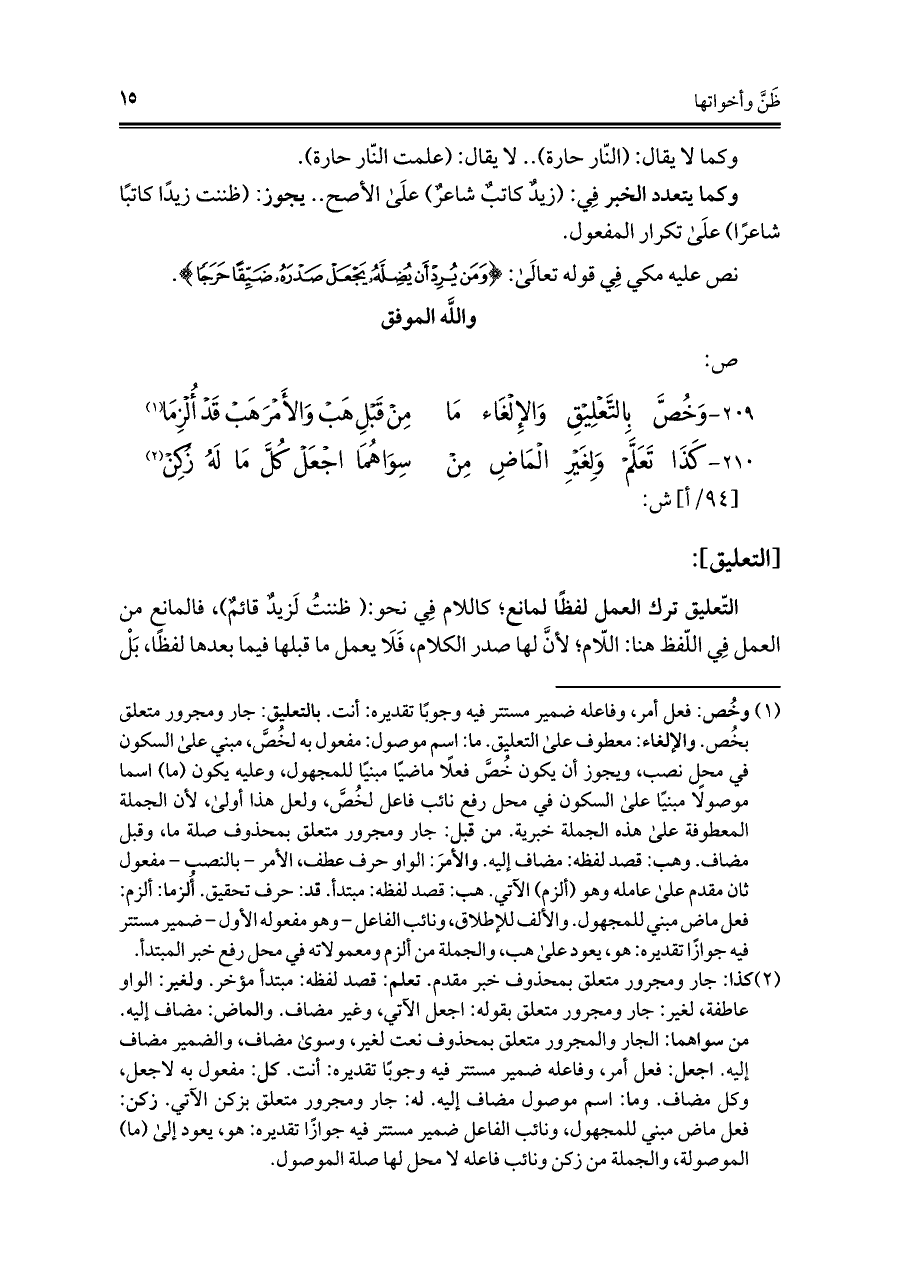 ظَنَّ وأخواتها ١٥
وكما لا يقال: (النّار حارة).. لا يقال: (علمت النّار حارة).
وكما يتعدد الخبر فِي: (زيدٌ كاتبٌ شاعرٌ) علَىٰ الأصح.. يجوز: (ظننت زيدًا كاتبًا
شاعرًا) علَىٰ تكرار المفعول.
نص عليه مكي فِي قوله تعالَىٰ: ﴿وَمَن يُرِدۡ أَن يُضِلَّهُۥ يَجۡعَلۡ صَدۡرَهُۥ ضَيِّقًا حَرَجٗا﴾.
واللَّه الموفق
ص:
٢٠٩- وَخُصَّ بِالتَّعْلِيْقِ وَالإِلْغَاء مَا مِنْ قَبْلِ هَبْ وَالأَمْرَ هَبْ قَدْ أُلْزِمَا(١)
٢١٠- كَذَا تَعَلَّمْ وَلِغَيْرِ الْمَاضِ مِنْ سِوَاهُمَا اجْعَلْ كُلَّ مَا لَهُ زُكِنْ(٢)
[٩٤/ أ] ش:
[التعليق]:
التّعليق ترك العمل لفظًا لمانع؛ كاللام فِي نحو:( ظننتُ لَزيدٌ قائمٌ)، فالمانع من
العمل فِي اللّفظ هنا: اللّام؛ لأنَّ لها صدر الكلام، فَلَا يعمل ما قبلها فيما بعدها لفظًا، بَلْ
(١) وخُص: فعل أمر، وفاعله ضمير مستتر فيه وجوبًا تقديره: أنت. بالتعليق: جار ومجرور متعلق
بخُص. والإلغاء: معطوف علىٰ التعليق. ما: اسم موصول: مفعول به لخُصَّ، مبني علىٰ السكون
في محل نصب، ويجوز أن يكون خُصَّ فعلًا ماضيًا مبنيًا للمجهول، وعليه يكون (ما) اسما
موصولًا مبنيًا علىٰ السكون في محل رفع نائب فاعل لخُصَّ، ولعل هذا أولىٰ، لأن الجملة
المعطوفة علىٰ هذه الجملة خبرية. من قبل: جار ومجرور متعلق بمحذوف صلة ما، وقبل
مضاف. وهب: قصد لفظه: مضاف إليه. والأمرَ: الواو حرف عطف، الأمر – بالنصب – مفعول
ثان مقدم علىٰ عامله وهو (ألزم) الآتي. هب: قصد لفظه: مبتدأ. قد: حرف تحقيق. أُلزما: ألزم:
فعل ماض مبني للمجهول. والألف للإطلاق، ونائب الفاعل – وهو مفعوله الأول – ضمير مستتر
فيه جوازًا تقديره: هو، يعود علىٰ هب، والجملة من ألزم ومعمولاته في محل رفع خبر المبتدأ.
(٢)كذا: جار ومجرور متعلق بمحذوف خبر مقدم. تعلم: قصد لفظه: مبتدأ مؤخر. ولغير: الواو
عاطفة، لغير: جار ومجرور متعلق بقوله: اجعل الآتي، وغير مضاف. والماض: مضاف إليه.
من سواهما: الجار والمجرور متعلق بمحذوف نعت لغير، وسوىٰ مضاف، والضمير مضاف
إليه. اجعل: فعل أمر، وفاعله ضمير مستتر فيه وجوبًا تقديره: أنت. كل: مفعول به لاجعل،
وكل مضاف. وما: اسم موصول مضاف إليه. له: جار ومجرور متعلق بزكن الآتي. زكن:
فعل ماض مبني للمجهول، ونائب الفاعل ضمير مستتر فيه جوازًا تقديره: هو، يعود إلىٰ (ما)
الموصولة، والجملة من زكن ونائب فاعله لا محل لها صلة الموصول.